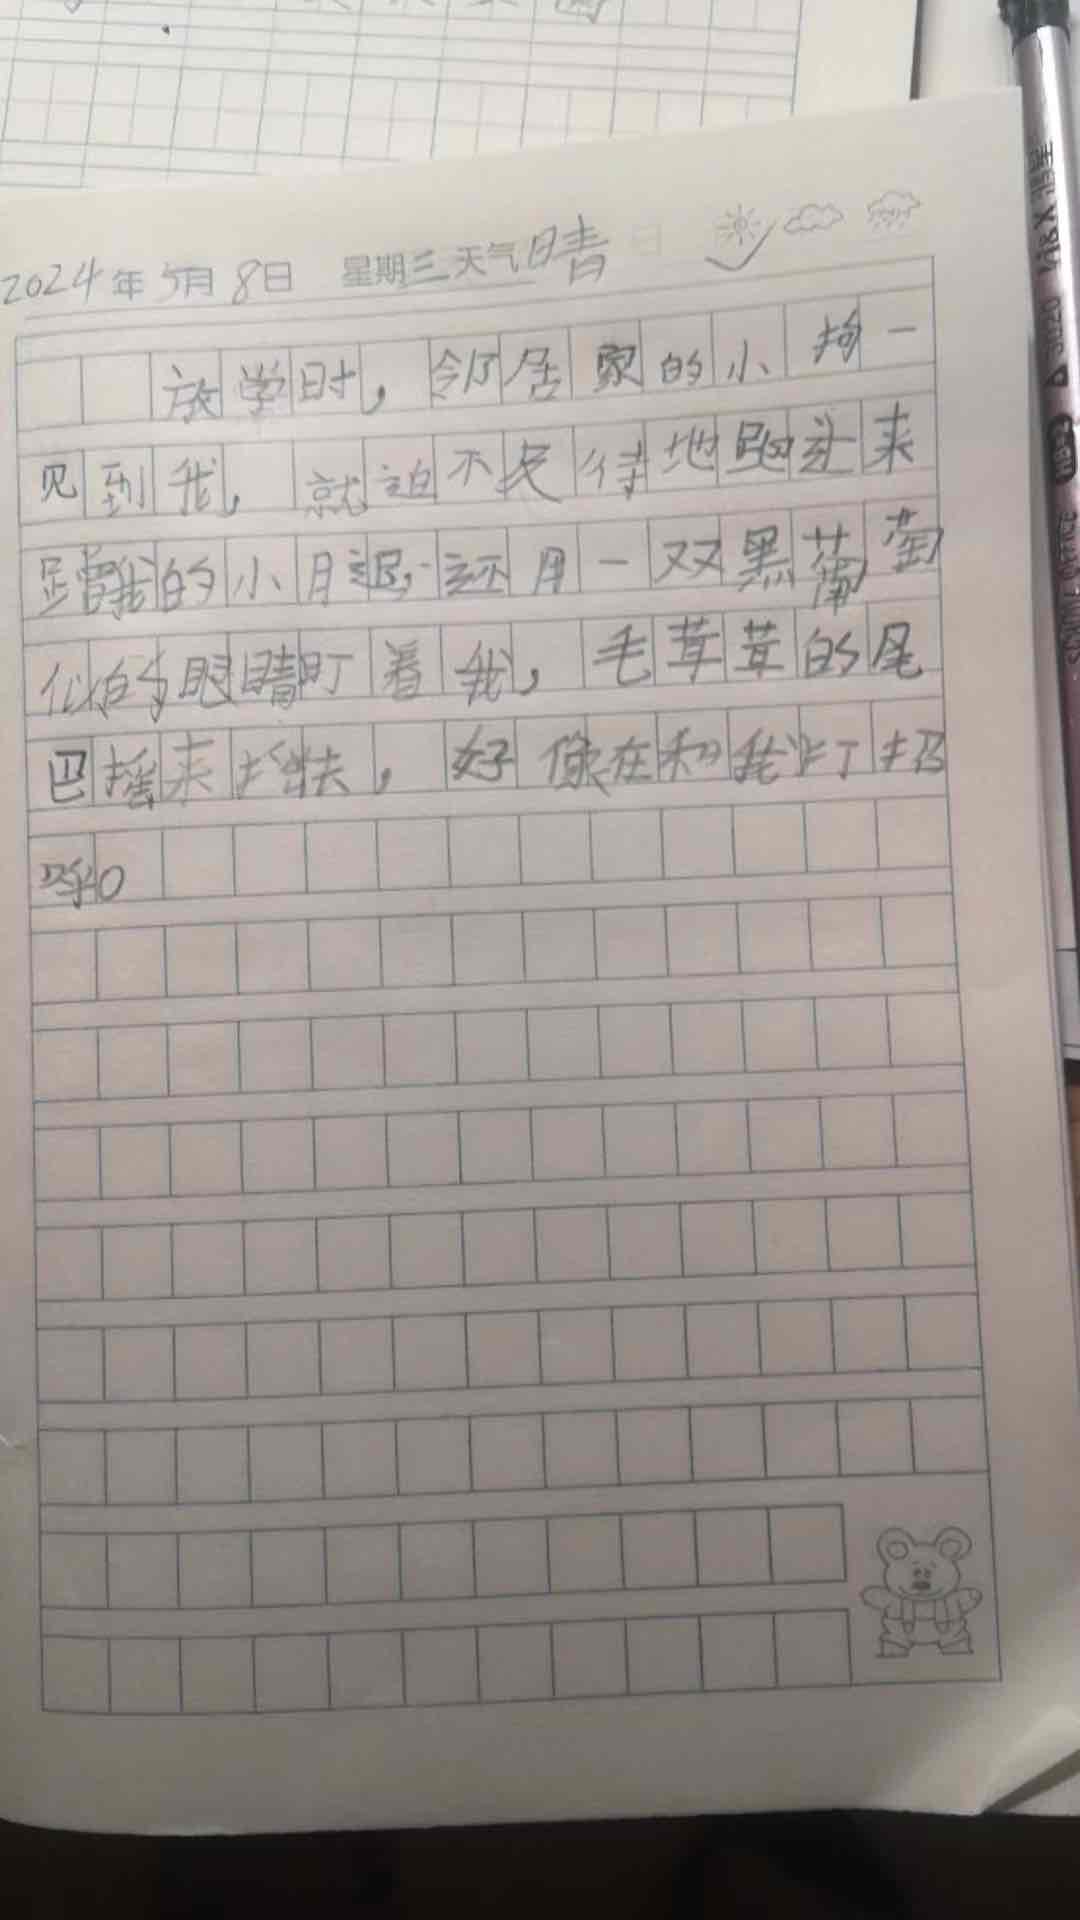 2024年5月8日 星期三天气晴
放学时，邻居家的小狗一
见到我，就迫不及待地跑过来
蹭我的小月退，还用一双黑葡萄
似的眼睛盯着我，毛茸茸的尾
巴摇来摇去，好像在和我打招
呼。